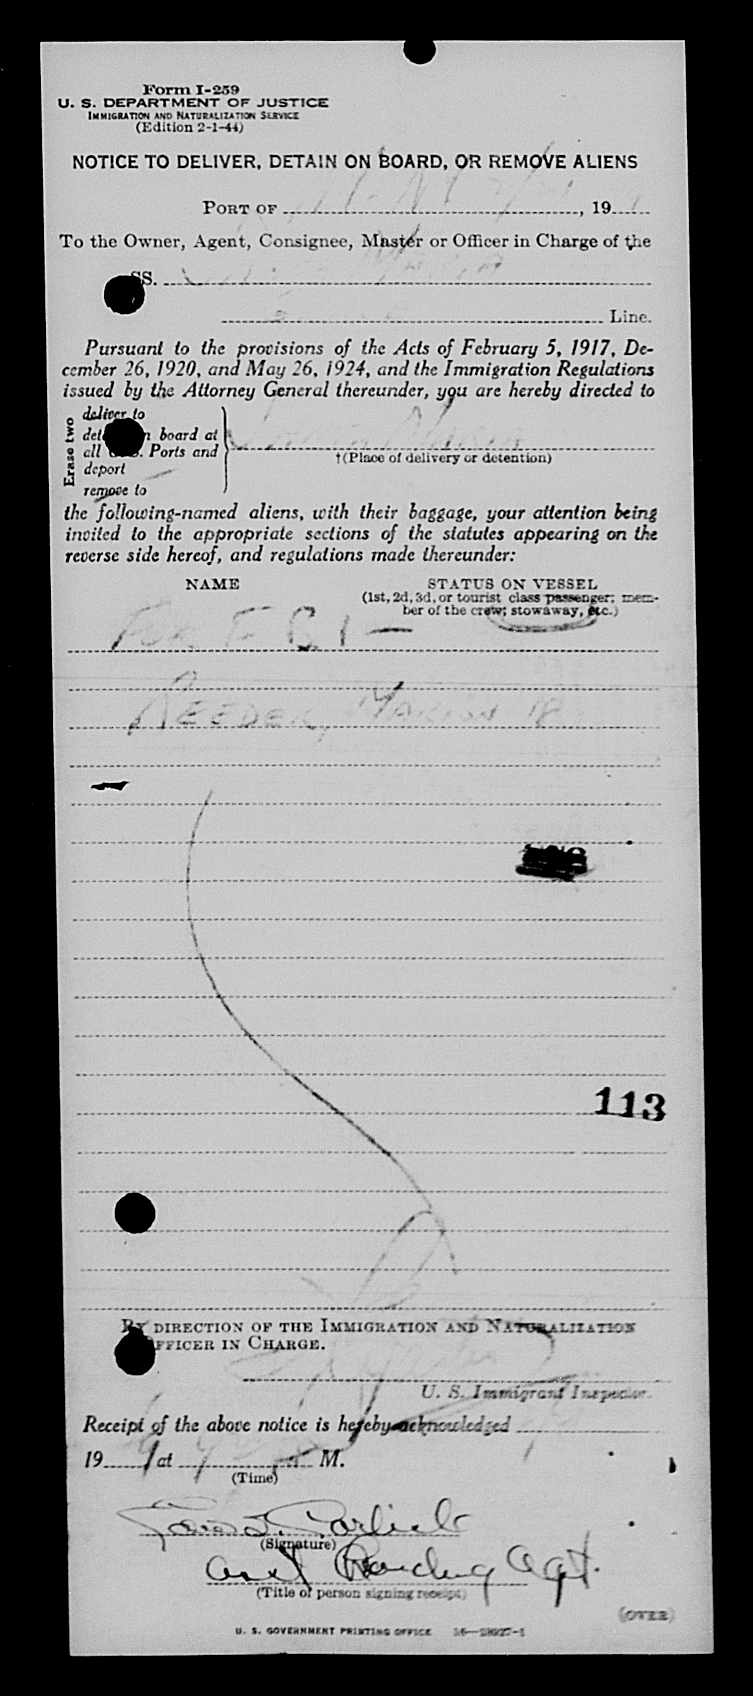 Form I-259
U. S. DEPARTMENT OF JUSTICE
IMMIGRATION AND NATURALIZATION SERVICE
(Edition 2-1-44)
NOTICE TO DELIVER, DETAIN ON BOARD, OR REMOVE ALIENS
PORT OF , 19
To the Owner, Agent, Consignee, Master or Officer in Charge of the
SS.
Line.
Pursuant to the provisions of the Acts of February 5, 1917, De-
cember 26, 1920, and May 26, 1924, and the Immigration Regulations
issued by the Attorney General thereunder, you are hereby directed to
Erase two
deliver to
board at
all Ports and
deport
remove to
†(Place of delivery or detention)
the following-named aliens, with their baggage, your attention being
invited to the appropriate sections of the statutes appearing on the
reverse side hereof, and regulations made thereunder:
NAME STATUS ON VESSEL
(1st, 2d, 3d, or tourist class passenger; mem-
ber of the crew; stowaway, etc.)
FOR F B I —
REEDER, MARION B
113
BY DIRECTION OF THE IMMIGRATION AND NATURALIZATION
OFFICER IN CHARGE.
U. S. Immigrant Inspector.
Receipt of the above notice is hereby acknowledged
19 at M.
(Time)
(Signature)
Asst Boarding Agt.
(Title of person signing receipt)
(OVER)
U. S. GOVERNMENT PRINTING OFFICE 16—28927-1